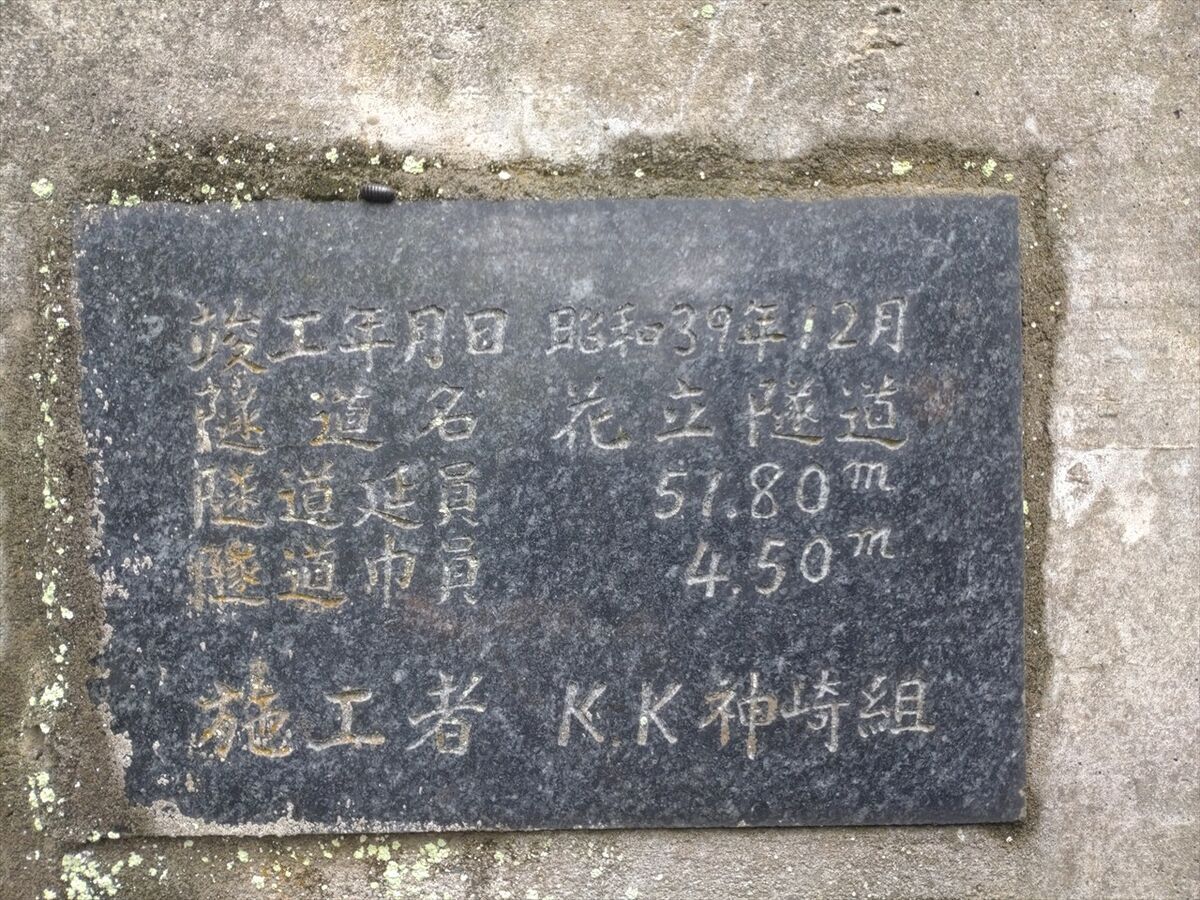 竣工年月日 昭和39年12月
隧道名 花立隧道
隧道延員 57.80m
隧道巾員 4.50m
施工者 K.K神崎組